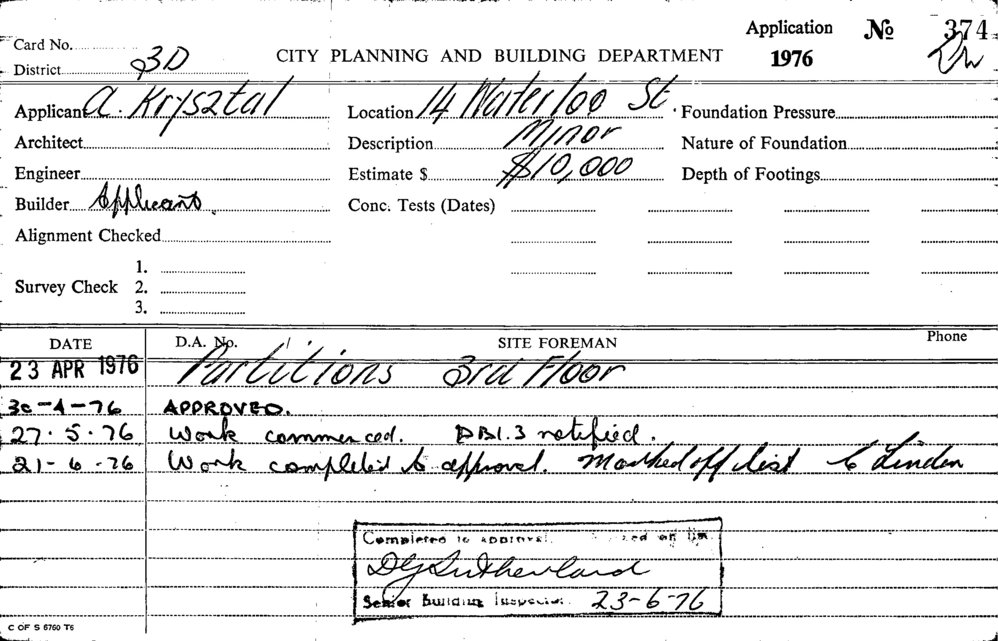 Card No.
District 3D
CITY PLANNING AND BUILDING DEPARTMENT
Application № 374
1976
Applicant A. Krysztal
Location 14 Waterloo St.
Foundation Pressure
Architect
Description Minor
Nature of Foundation
Engineer
Estimate $ $10,000
Depth of Footings
Builder Applicant.
Conc. Tests (Dates)
Alignment Checked
Survey Check
1.
2.
3.
DATE
D.A. No.
SITE FOREMAN
Phone
23 APR 1976 Partitions 3rd Floor
30-4-76 APPROVED.
27.5.76 Work commenced. DB1.3 notified.
21-6-76 Work completed to approval. Marked off list
Completed to approval.
DG Sutherland
Senior Building Inspector. 23-6-76
C OF S 6760 T6